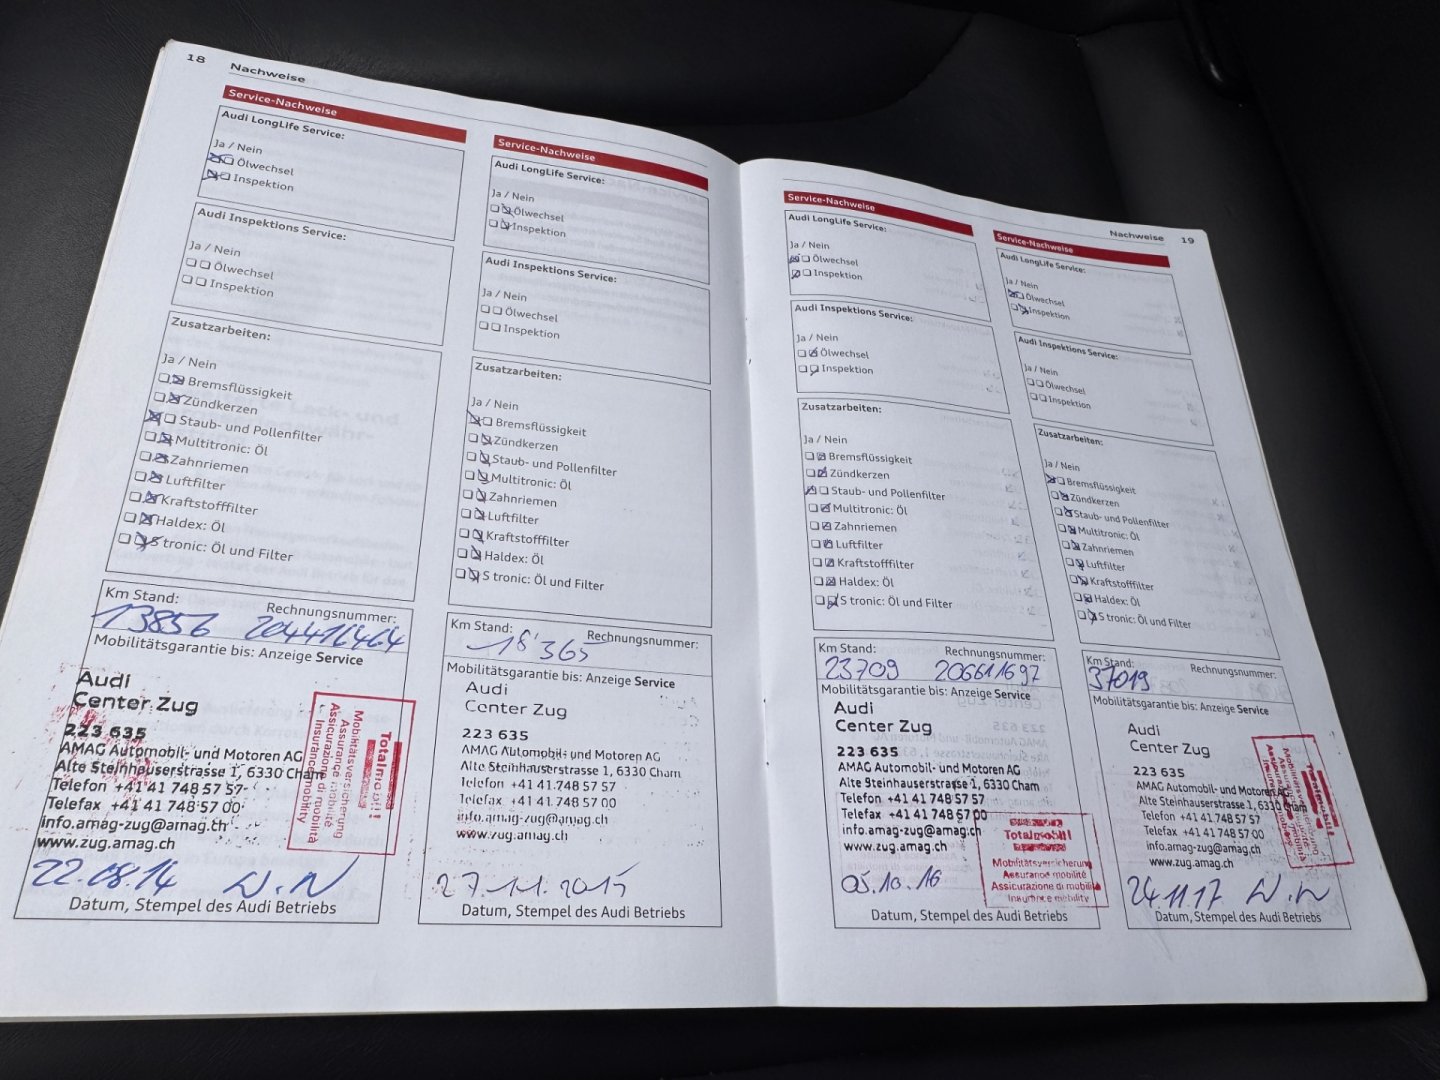 18
Nachweise
Service-Nachweise
Audi LongLife Service:
Ja / Nein
Ölwechsel
Inspektion
Audi Inspektions Service:
Ja / Nein
Ölwechsel
Inspektion
Zusatzarbeiten:
Ja / Nein
Bremsflüssigkeit
Zündkerzen
Staub- und Pollenfilter
Multitronic: Öl
Zahnriemen
Luftfilter
Kraftstofffilter
Haldex: Öl
S tronic: Öl und Filter
Km Stand: Rechnungsnummer:
13856 204416464
Mobilitätsgarantie bis: Anzeige Service
Audi
Center Zug
223 635
AMAG Automobil- und Motoren AG
Alte Steinhauserstrasse 1, 6330 Cham
Telefon +41 41 748 57 57
Telefax +41 41 748 57 00
info.amag-zug@amag.ch
www.zug.amag.ch
Totalmobil!
Mobilitätsversicherung
Assurance mobilité
Assicurazione di mobilità
Insurance mobility
22.08.14
Datum, Stempel des Audi Betriebs
Service-Nachweise
Audi LongLife Service:
Ja / Nein
Ölwechsel
Inspektion
Audi Inspektions Service:
Ja / Nein
Ölwechsel
Inspektion
Zusatzarbeiten:
Ja / Nein
Bremsflüssigkeit
Zündkerzen
Staub- und Pollenfilter
Multitronic: Öl
Zahnriemen
Luftfilter
Kraftstofffilter
Haldex: Öl
S tronic: Öl und Filter
Km Stand: Rechnungsnummer:
18'365
Mobilitätsgarantie bis: Anzeige Service
Audi
Center Zug
223 635
AMAG Automobil- und Motoren AG
Alte Steinhauserstrasse 1, 6330 Cham
Telefon +41 41 748 57 57
Telefax +41 41 748 57 00
info.amag-zug@amag.ch
www.zug.amag.ch
27.11.2015
Datum, Stempel des Audi Betriebs
Service-Nachweise
Audi LongLife Service:
Ja / Nein
Ölwechsel
Inspektion
Audi Inspektions Service:
Ja / Nein
Ölwechsel
Inspektion
Zusatzarbeiten:
Ja / Nein
Bremsflüssigkeit
Zündkerzen
Staub- und Pollenfilter
Multitronic: Öl
Zahnriemen
Luftfilter
Kraftstofffilter
Haldex: Öl
S tronic: Öl und Filter
Km Stand: Rechnungsnummer:
23709 206611697
Mobilitätsgarantie bis: Anzeige Service
Audi
Center Zug
223 635
AMAG Automobil- und Motoren AG
Alte Steinhauserstrasse 1, 6330 Cham
Telefon +41 41 748 57 57
Telefax +41 41 748 57 00
info.amag-zug@amag.ch
www.zug.amag.ch
Totalmobil!
Mobilitätsversicherung
Assurance mobilité
Assicurazione di mobilità
Insurance mobility
05.10.16
Datum, Stempel des Audi Betriebs
Nachweise 19
Service-Nachweise
Audi LongLife Service:
Ja / Nein
Ölwechsel
Inspektion
Audi Inspektions Service:
Ja / Nein
Ölwechsel
Inspektion
Zusatzarbeiten:
Ja / Nein
Bremsflüssigkeit
Zündkerzen
Staub- und Pollenfilter
Multitronic: Öl
Zahnriemen
Luftfilter
Kraftstofffilter
Haldex: Öl
S tronic: Öl und Filter
Km Stand: Rechnungsnummer:
37019
Mobilitätsgarantie bis: Anzeige Service
Audi
Center Zug
223 635
AMAG Automobil- und Motoren AG
Alte Steinhauserstrasse 1, 6330 Cham
Telefon +41 41 748 57 57
Telefax +41 41 748 57 00
info.amag-zug@amag.ch
www.zug.amag.ch
Totalmobil!
24.11.17
Datum, Stempel des Audi Betriebs